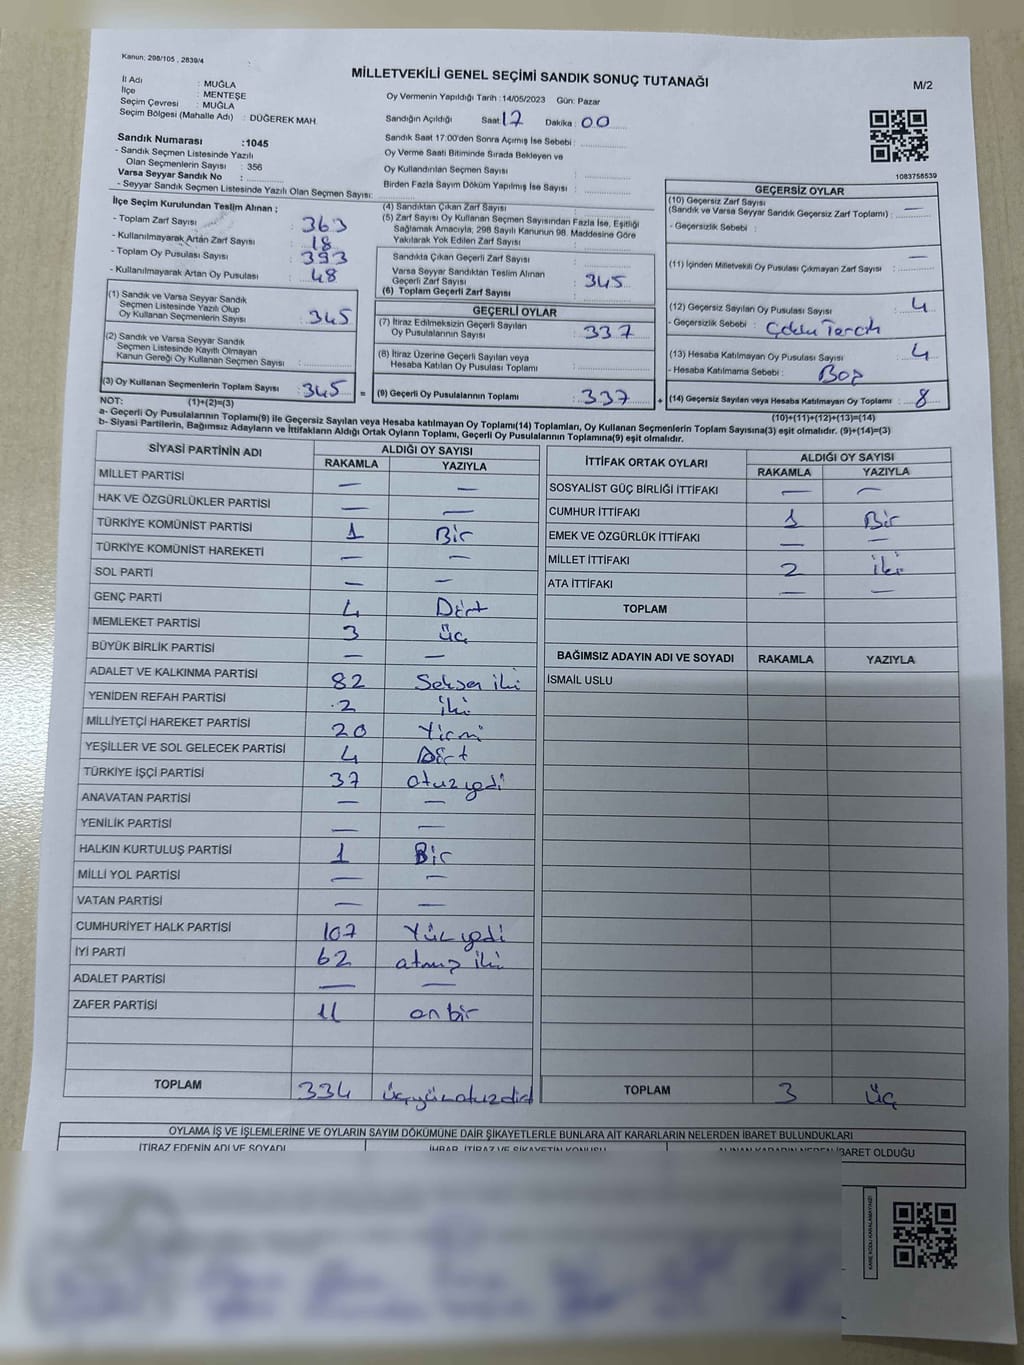 Kanun; 298/105 , 2839/4
MİLLETVEKİLİ GENEL SEÇİMİ SANDIK SONUÇ TUTANAĞI
M/2
İl Adı : MUĞLA
İlçe : MENTEŞE
Seçim Çevresi : MUĞLA
Seçim Bölgesi (Mahalle Adı) : DÜĞEREK MAH.
Oy Vermenin Yapıldığı Tarih :14/05/2023 Gün: Pazar
Sandığın Açıldığı Saat: 17 Dakika : 00
Sandık Saat 17:00'den Sonra Açımış İse Sebebi :
Oy Verme Saati Bitiminde Sırada Bekleyen ve
Oy Kullandırılan Seçmen Sayısı :
Birden Fazla Sayım Döküm Yapılmış İse Sayısı :
1083758539
Sandık Numarası :1045
- Sandık Seçmen Listesinde Yazılı
Olan Seçmenlerin Sayısı : 356
Varsa Seyyar Sandık No :
- Seyyar Sandık Seçmen Listesinde Yazılı Olan Seçmen Sayısı:
İlçe Seçim Kurulundan Teslim Alınan ;
- Toplam Zarf Sayısı : 363
- Kullanılmayarak Artan Zarf Sayısı : 18
- Toplam Oy Pusulası Sayısı : 393
- Kullanılmayarak Artan Oy Pusulası : 48
(1) Sandık ve Varsa Seyyar Sandık
Seçmen Listesinde Yazılı Olup
Oy Kullanan Seçmenlerin Sayısı : 345
(2) Sandık ve Varsa Seyyar Sandık
Seçmen Listesinde Kayıtlı Olmayan
Kanun Gereği Oy Kullanan Seçmen Sayısı :
(3) Oy Kullanan Seçmenlerin Toplam Sayısı : 345 =
(4) Sandıktan Çıkan Zarf Sayısı :
(5) Zarf Sayısı Oy Kullanan Seçmen Sayısından Fazla İse, Eşitliği
Sağlamak Amacıyla; 298 Sayılı Kanunun 98. Maddesine Göre
Yakılarak Yok Edilen Zarf Sayısı :
Sandıkta Çıkan Geçerli Zarf Sayısı :
Varsa Seyyar Sandıktan Teslim Alınan
Geçerli Zarf Sayısı : 345
(6) Toplam Geçerli Zarf Sayısı :
GEÇERLİ OYLAR
(7) İtiraz Edilmeksizin Geçerli Sayılan
Oy Pusulalarının Sayısı : 337
(8) İtiraz Üzerine Geçerli Sayılan veya
Hesaba Katılan Oy Pusulası Toplamı :
(9) Geçerli Oy Pusulalarının Toplamı : 337 +
GEÇERSİZ OYLAR
(10) Geçersiz Zarf Sayısı
(Sandık ve Varsa Seyyar Sandık Geçersiz Zarf Toplamı) : —
- Geçersizlik Sebebi :
(11) İçinden Milletvekili Oy Pusulası Çıkmayan Zarf Sayısı : —
(12) Geçersiz Sayılan Oy Pusulası Sayısı : 4
- Geçersizlik Sebebi : Çoklu Tercih
(13) Hesaba Katılmayan Oy Pusulası Sayısı : 4
- Hesaba Katılmama Sebebi : Boş
(14) Geçersiz Sayılan veya Hesaba Katılmayan Oy Toplamı : 8
NOT: (1)+(2)=(3) (10)+(11)+(12)+(13)=(14)
a- Geçerli Oy Pusulalarının Toplamı(9) ile Geçersiz Sayılan veya Hesaba katılmayan Oy Toplamı(14) Toplamları, Oy Kullanan Seçmenlerin Toplam Sayısına(3) eşit olmalıdır. (9)+(14)=(3)
b- Siyasi Partilerin, Bağımsız Adayların ve İttifakların Aldığı Ortak Oyların Toplamı, Geçerli Oy Pusulalarının Toplamına(9) eşit olmalıdır.
SİYASİ PARTİNİN ADI ALDIĞI OY SAYISI
RAKAMLA YAZIYLA
MİLLET PARTİSİ — —
HAK VE ÖZGÜRLÜKLER PARTİSİ — —
TÜRKİYE KOMÜNİST PARTİSİ 1 Bir
TÜRKİYE KOMÜNİST HAREKETİ — —
SOL PARTİ — —
GENÇ PARTİ 4 Dört
MEMLEKET PARTİSİ 3 üç
BÜYÜK BİRLİK PARTİSİ — —
ADALET VE KALKINMA PARTİSİ 82 Seksen iki
YENİDEN REFAH PARTİSİ 2 iki
MİLLİYETÇİ HAREKET PARTİSİ 20 Yirmi
YEŞİLLER VE SOL GELECEK PARTİSİ 4 Dört
TÜRKİYE İŞÇİ PARTİSİ 37 otuz yedi
ANAVATAN PARTİSİ — —
YENİLİK PARTİSİ — —
HALKIN KURTULUŞ PARTİSİ 1 Bir
MİLLİ YOL PARTİSİ — —
VATAN PARTİSİ — —
CUMHURİYET HALK PARTİSİ 107 Yüz yedi
İYİ PARTİ 62 atmış iki
ADALET PARTİSİ — —
ZAFER PARTİSİ 11 on bir
TOPLAM 334 üçyüzotuzdört
İTTİFAK ORTAK OYLARI ALDIĞI OY SAYISI
RAKAMLA YAZIYLA
SOSYALİST GÜÇ BİRLİĞİ İTTİFAKI — —
CUMHUR İTTİFAKI 1 Bir
EMEK VE ÖZGÜRLÜK İTTİFAKI — —
MİLLET İTTİFAKI 2 iki
ATA İTTİFAKI — —
TOPLAM
BAĞIMSIZ ADAYIN ADI VE SOYADI RAKAMLA YAZIYLA
İSMAİL USLU
TOPLAM 3 üç
OYLAMA İŞ VE İŞLEMLERİNE VE OYLARIN SAYIM DÖKÜMÜNE DAİR ŞİKAYETLERLE BUNLARA AİT KARARLARIN NELERDEN İBARET BULUNDUKLARI
İTİRAZ EDENİN ADI VE SOYADI İHBAR, İTİRAZ VE ŞİKAYETİN KONUSU ALINAN KARARIN NEDEN İBARET OLDUĞU
KARE KODU KARALAMAYINIZ!